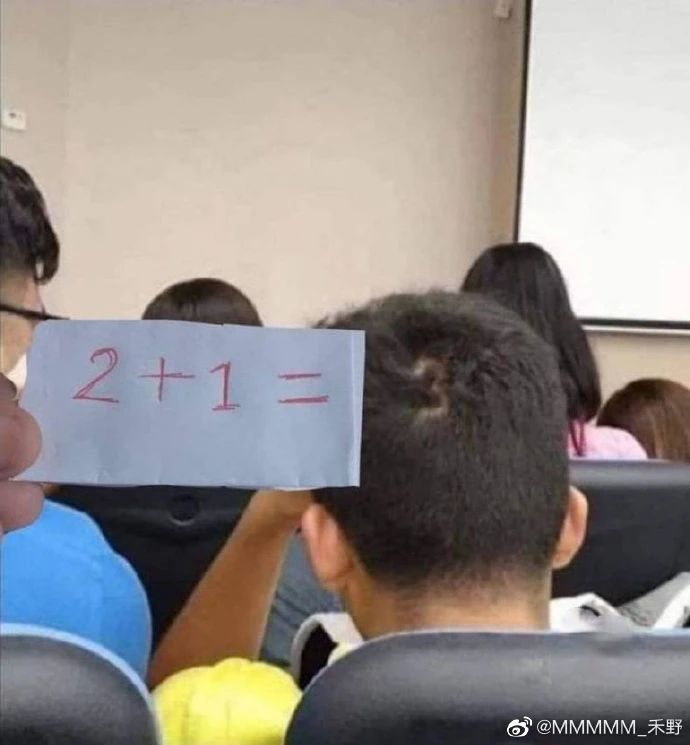 2+1=
@MMMMM_禾野